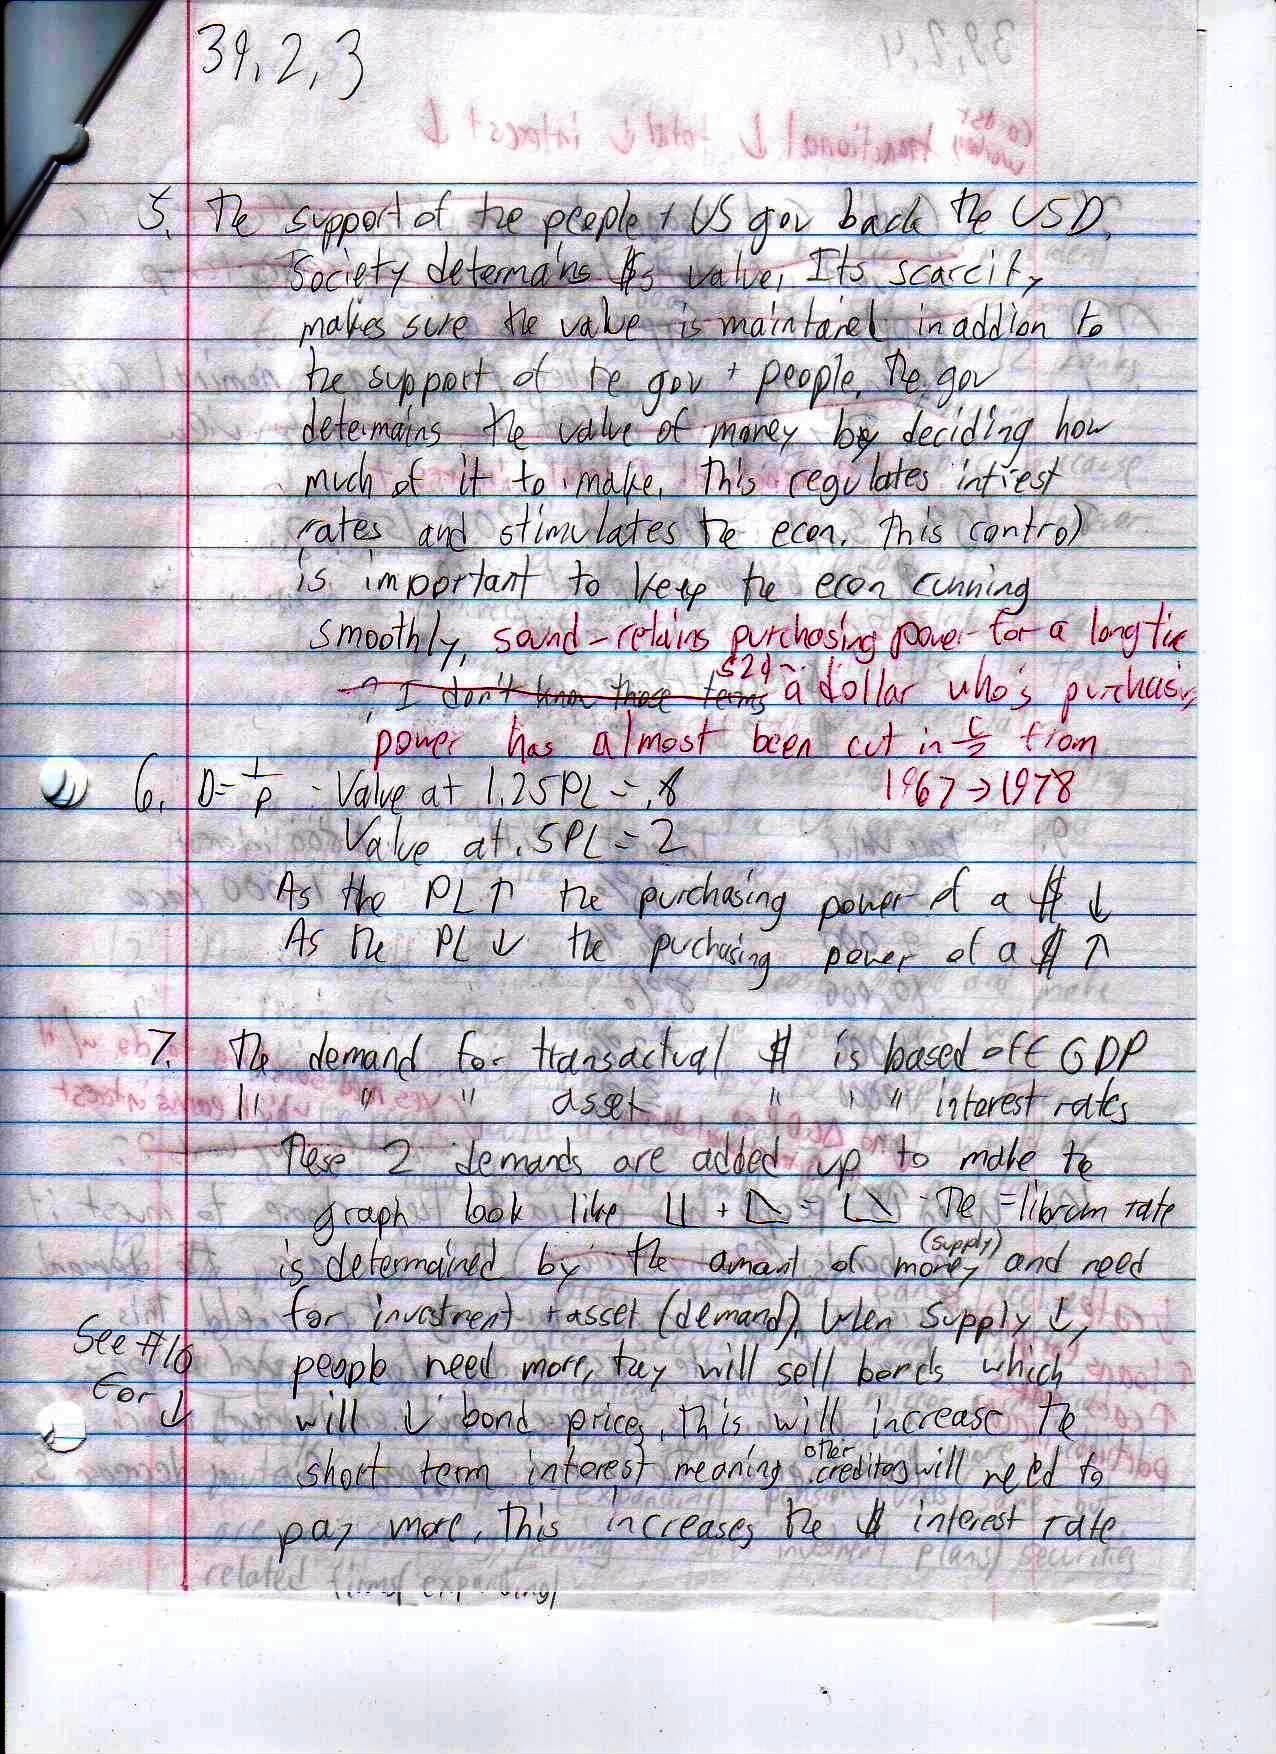 39,2,3
5. The support of the people + US gov back the USD.
Society determains $s value, Its scarcity
makes sure the value is maintaned in addion to
the support of te gov + people. The gov
determains the value of money by deciding how
much of it to make. This regulates intrest
rates and stimulates the econ. This control
is important to keep the econ running
smoothly, sound-retains purchasing power for a long time
? I don't know those terms a dollar who's purchasing
power has almost been cut in from
1967→1978
6. D=1/P - Value at 1.25PL=.8
Value at .5PL=2
As the PL↑ the purchasing power of a $ ↓
As the PL ↓ the purchasing power of a $ ↑
7. The demand for transactual $ is based off GDP
" " " asset " " " interest rates
These 2 demands are added up to make the
graph look like + = The =librum rate
is determained by the amant of money (supply) and need
for investment + asset (demand). When supply ↓,
See #10
for ↓
people need more, they will sell bonds which
will ↓ bond prices, this will increase the
short term interest meaning other creditors will need to
pay more. This increases the $ interest rate
related firms